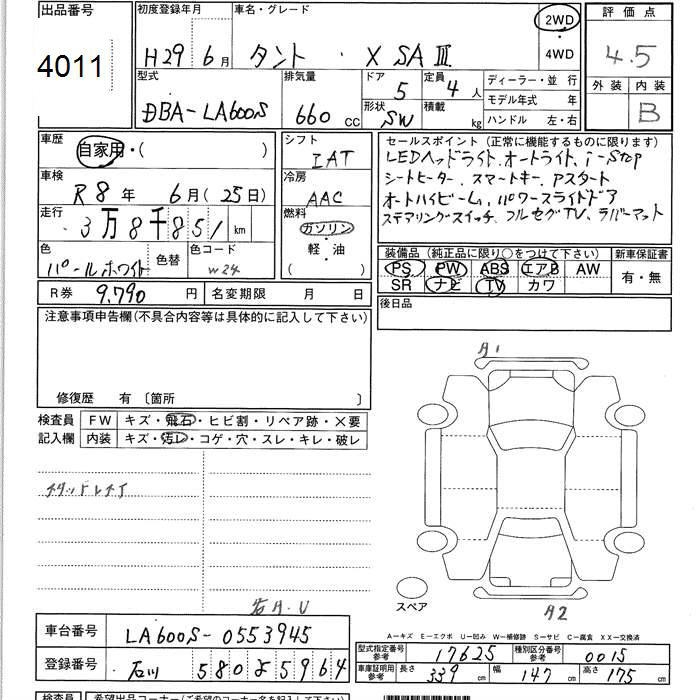 出品番号
4011
初度登録年月
H29年 6月
車名・グレード
タント ・ X SAⅢ
2WD
・
4WD
評価点
4.5
外装 内装
B
型式
DBA-LA600S
排気量
660 cc
ドア
5
定員
4人
形状
SW
積載
kg
ディーラー・並行
モデル年式 年
ハンドル 左・右
車歴
自家用・( )
車検
R8年 6月(25日)
走行
3万8千851 km
色
パールホワイト
色替
色コード
W24
シフト
IAT
冷房
AAC
燃料
ガソリン
・
軽・油
( )
セールスポイント (正常に機能するものに限ります)
LEDヘッドライト、オートライト、i-Stop
シートヒーター、スマートキー、Pスタート
オートハイビーム、パワースライドドア
ステアリングスイッチ、フルセグTV、ラバーマット
装備品 (純正品に限り○をつけて下さい) 新車保証書
PS PW ABS エアB AW
SR ナビ TV カワ
有・無
R券 9,790 円 名変期限 月 日
後日品
注意事項申告欄(不具合内容等は具体的に記入して下さい)
修復歴 有 〔箇所 〕
検査員
記入欄
FW キズ・飛石・ヒビ割・リペア跡・×要
内装 キズ・汚レ・コゲ・穴・スレ・キレ・破レ
A1
スペア
A2
A-キズ E-エクボ U-凹み W-補修跡 S-サビ C-腐食 XX-交換済
車台番号 LA600S-0553945
登録番号 石川 580 よ 5964
型式指定番号 参考 17625 種別区分番号 参考 0015
車庫証明用 参考 長さ 339 cm 幅 147 cm 高さ 175 cm
検査員 希望出品コーナー(ご希望のコーナー名を記入して下さい)